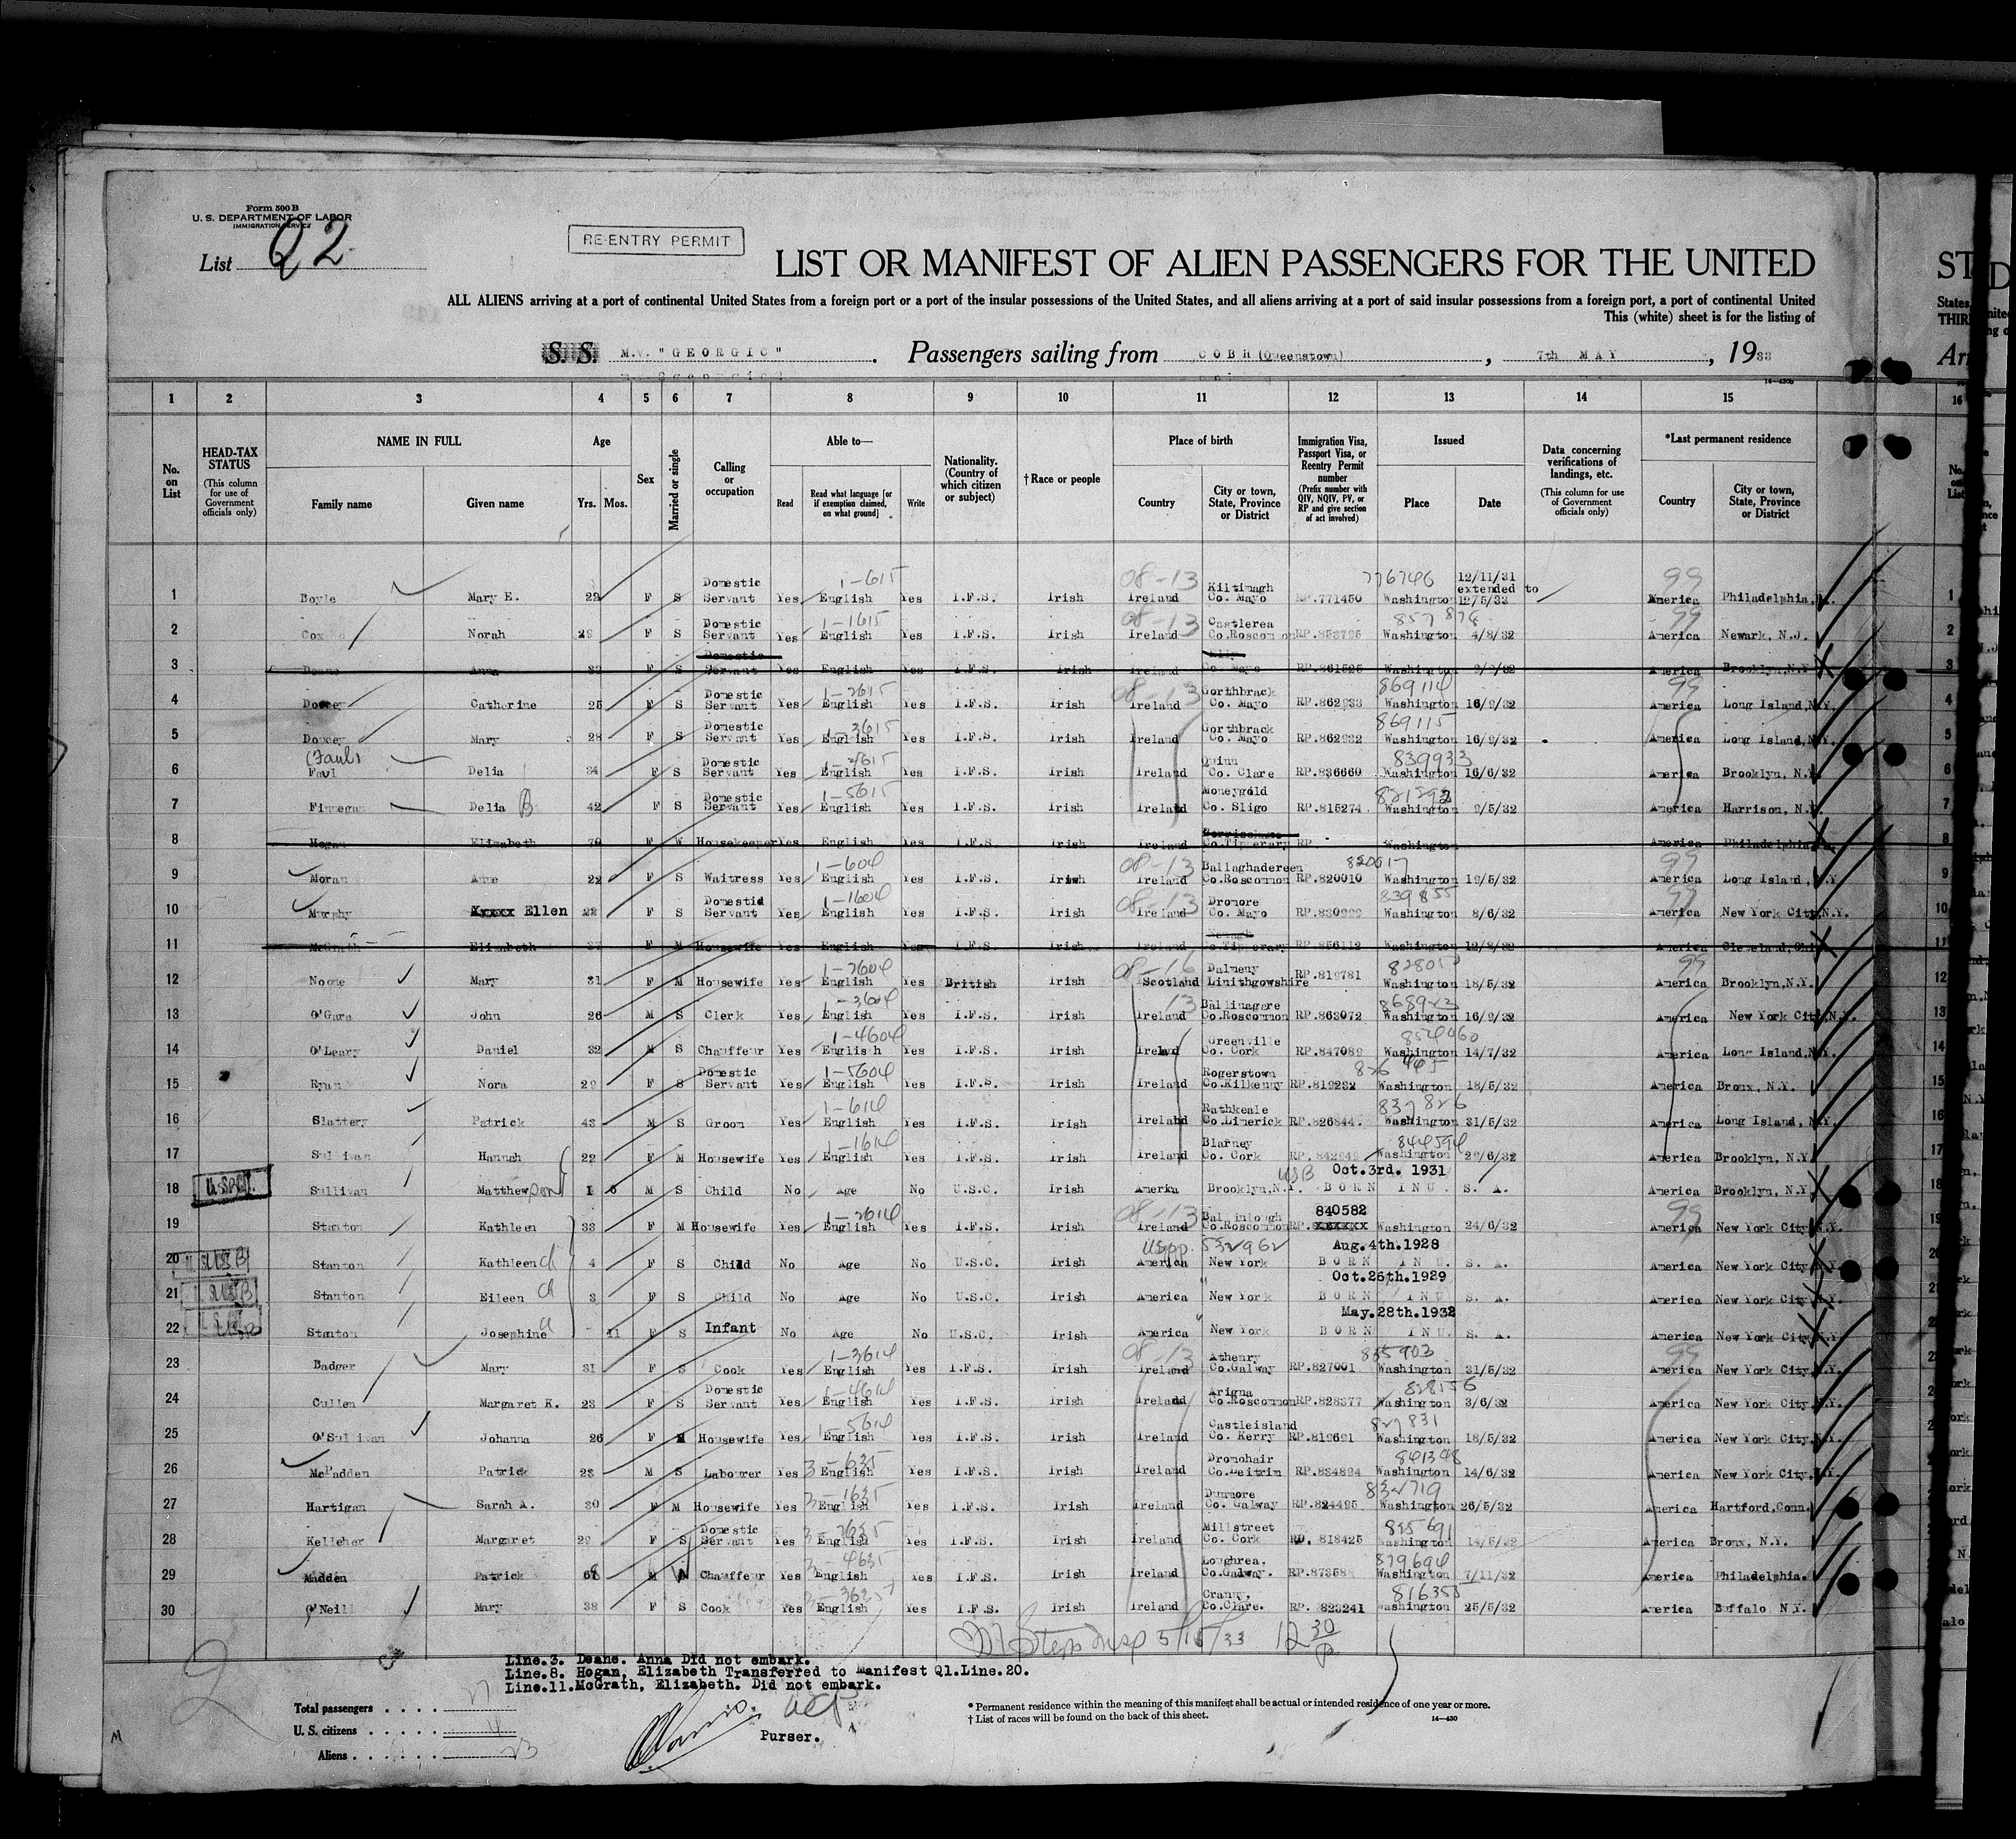 Form 500 B
U. S. DEPARTMENT OF LABOR
IMMIGRATION SERVICE
List Q2
RE-ENTRY PERMIT
LIST OR MANIFEST OF ALIEN PASSENGERS FOR THE UNITED
ALL ALIENS arriving at a port of continental United States from a foreign port or a port of the insular possessions of the United States, and all aliens arriving at a port of said insular possessions from a foreign port, a port of continental United
This (white) sheet is for the listing of
S. S. M.V. "GEORGIC" . Passengers sailing from COBH (Queenstown) , 7th MAY , 1933
14—430b
1 2 3 4 5 6 7 8 9 10 11 12 13 14 15 16
No. on List
HEAD-TAX STATUS (This column for use of Government officials only)
NAME IN FULL Family name Given name
Age Yrs. Mos.
Sex
Married or single
Calling or occupation
Able to— Read Read what language [or if exemption claimed, on what ground] Write
Nationality. (Country of which citizen or subject)
† Race or people
Place of birth Country City or town, State, Province or District
Immigration Visa, Passport Visa, or Reentry Permit number (Prefix number with QIV, NQIV, PV, or RP and give section of act involved)
Issued Place Date
Data concerning verifications of landings, etc. (This column for use of Government officials only)
*Last permanent residence Country City or town, State, Province or District
1 Boyle Mary E. 22 F S Domestic Servant Yes English 1-615 Yes I.F.S. Irish 08-13 Ireland Kiltimagh Co. Mayo RP.771450 776746 Washington 12/11/31 extended to 12/5/33 99 America Philadelphia,
2 Cox Norah 29 F S Domestic Servant Yes English 1-1615 Yes I.F.S. Irish 08-13 Ireland Castlerea Co.Roscommon RP.853795 857876 Washington 4/8/32 99 America Newark, N.J.
3 Deane Anna F S Domestic Servant Yes English Yes I.F.S. Irish Ireland Co. Mayo RP.861525 Washington America Brooklyn,N.Y.
4 Doxey Catherine 25 F S Domestic Servant Yes English 1-2615 Yes I.F.S. Irish 08-13 Ireland Gorthbrack Co. Mayo RP.862933 869114 Washington 16/9/32 99 America Long Island,N.Y.
5 Doxey Mary 28 F S Domestic Servant Yes English 1-3615 Yes I.F.S. Irish Ireland Gorthbrack Co. Mayo RP.862932 869115 Washington 16/9/32 America Long Island,N.Y.
6 (Faul) Favl Delia 34 F S Domestic Servant Yes English 1-4615 Yes I.F.S. Irish Ireland Quinn Co. Clare RP.836660 839933 Washington 16/6/32 America Brooklyn, N.Y.
7 Finnegan Delia B 42 F S Domestic Servant Yes English 1-5615 Yes I.F.S. Irish Ireland Moneygold Co. Sligo RP.815274 Washington 9/5/32 America Harrison, N.Y.
8 Hogan Elizabeth 70 F W Housekeeper Yes English Yes I.F.S. Irish Ireland Co.Tipperary RP Washington America Philadelphia
9 Moran Anne 22 F S Waitress Yes English 1-604 Yes I.F.S. Irish 08-13 Ireland Ballaghadereen Co.Roscommon RP.820010 820617 Washington 19/5/32 99 America Long Island, N.Y.
10 Murphy Xxxxx Ellen 22 F S Domestic Servant Yes English 1-1604 Yes I.F.S. Irish 08-13 Ireland Dromore Co. Mayo 839855 Washington 8/6/32 99 America New York City,N.Y.
11 McGrath Elizabeth 37 F M Housewife Yes English Yes I.F.S. Irish Ireland Co.Tipperary RP.856112 Washington 12/8/32 America Cleveland,Ohio
12 Noone Mary 31 F M Housewife Yes English 1-2604 Yes British Irish 08-16 Scotland Dalmeny Linithgowshire RP.819781 Washington 18/5/32 99 America Brooklyn,N.Y.
13 O'Gara John 26 M S Clerk Yes English 1-3604 Yes I.F.S. Irish 13 Ireland Ballinagare Co.Roscommon RP.863072 868923 Washington 16/9/32 America New York City,N.Y.
14 O'Leary Daniel 32 M S Chauffeur Yes English 1-4604 Yes I.F.S. Irish Ireland Greenville Co. Cork RP.847089 854060 Washington 14/7/32 America Long Island,N.Y.
15 Ryan Nora 29 F S Domestic Servant Yes English 1-5604 Yes I.F.S. Irish Ireland Rogerstown Co.Kilkenny RP.819232 826465 Washington 18/5/32 America Bronx, N.Y.
16 Slattery Patrick 43 M S Groom Yes English 1-614 Yes I.F.S. Irish Ireland Rathkeale Co.Limerick RP.826844. 837826 Washington 31/5/32 America Long Island, N.Y.
17 Sullivan Hannah 22 F M Housewife Yes English 1-1614 Yes I.F.S. Irish Ireland Blarney Co. Cork RP.842949 844594 Washington 29/6/32 America Brooklyn, N.Y.
18 Sullivan Matthew 1 6 M S Child No Age No U.S.C. Irish Amerka Brooklyn,N.Y. USB Oct.3rd. 1931 BORN IN U. S. A. America Brooklyn, N.Y.
19 Stanton Kathleen 33 F M Housewife Yes English 1-2614 Yes I.F.S. Irish 08-13 Ireland Ballinlough Co.Roscommon RP. 840582 xxxxxx Washington 24/6/32 99 America New York City,N.Y.
20 USB Stanton Kathleen ch 4 F S Child No Age No U.S.C. Irish USpp. 532962 America New York Aug.4th.1928 BORN IN U. S. A. America New York City,N.Y.
21 USB Stanton Eileen ch 3 F S Child No Age No U.S.C. Irish America " New York Oct.26th.1929 BORN IN U. S. A. America New York City,N.Y.
22 Stanton Josephine - 11 F S Infant No Age No U.S.C. Irish America " New York May.28th.1932 BORN IN U. S. A. America New York City,N.Y.
23 Badger Mary 31 F S Cook Yes English 1-3614 Yes I.F.S. Irish 08-13 Ireland Athenry Co.Galway RP.827001 835903 Washington 31/5/32 99 America New York City,N.Y.
24 Cullen Margaret K. 23 F S Domestic Servant Yes English 1-4614 Yes I.F.S. Irish Ireland Arigna Co.Roscommon RP.828377 828156 Washington 3/6/32 America New York City,N.Y.
25 O'Sullivan Johanna 26 F M Housewife Yes English 1-5614 Yes I.F.S. Irish Ireland Castleisland Co. Kerry RP.819691 827831 Washington 18/5/32 America New York City,N.Y.
26 McPadden Patrick 23 M S Labourer Yes English 3-635 Yes I.F.S. Irish Ireland Dromohair Co.Leitrim RP.834894 841348 Washington 14/6/32 America New York City,N.Y.
27 Hartigan Sarah A. 30 F M Housewife Yes English 3-1635 Yes I.F.S. Irish Ireland Dunmore Co. Galway RP.824495 832719 Washington 26/5/32 America Hartford,Conn.
28 Kelleher Margaret 29 F S Domestic Servant Yes English 3-2635 Yes I.F.S. Irish Ireland Millstreet Co. Cork RD. 818425 825691 Washington 14/5/32 America Bronx, N.Y.
29 Madden Patrick M Chauffeur Yes English 3-4635 Yes I.F.S. Irish Ireland Loughrea, Co.Galway. RP.87358 879694 Washington 7/11/32 America Philadelphia.
30 O'Neill Mary 38 F S Cook Yes English 3635 Yes I.F.S. Irish Ireland Cranny, Co.Clare. RP. 823241 816355 Washington 25/5/32 America Buffalo N.Y.
Insp 5/15/33 12 30 p
Line.3. Deane. Anna Did not embark.
Line.8. Hogan, Elizabeth Transferred to Manifest Q1.Line.20.
Line.11.McGrath, Elizabeth. Did not embark.
Total passengers . . . . 27
U. S. citizens . . . . . 4
Aliens . . . . . . 23
Purser.
* Permanent residence within the meaning of this manifest shall be actual or intended residence of one year or more.
† List of races will be found on the back of this sheet. 14—430